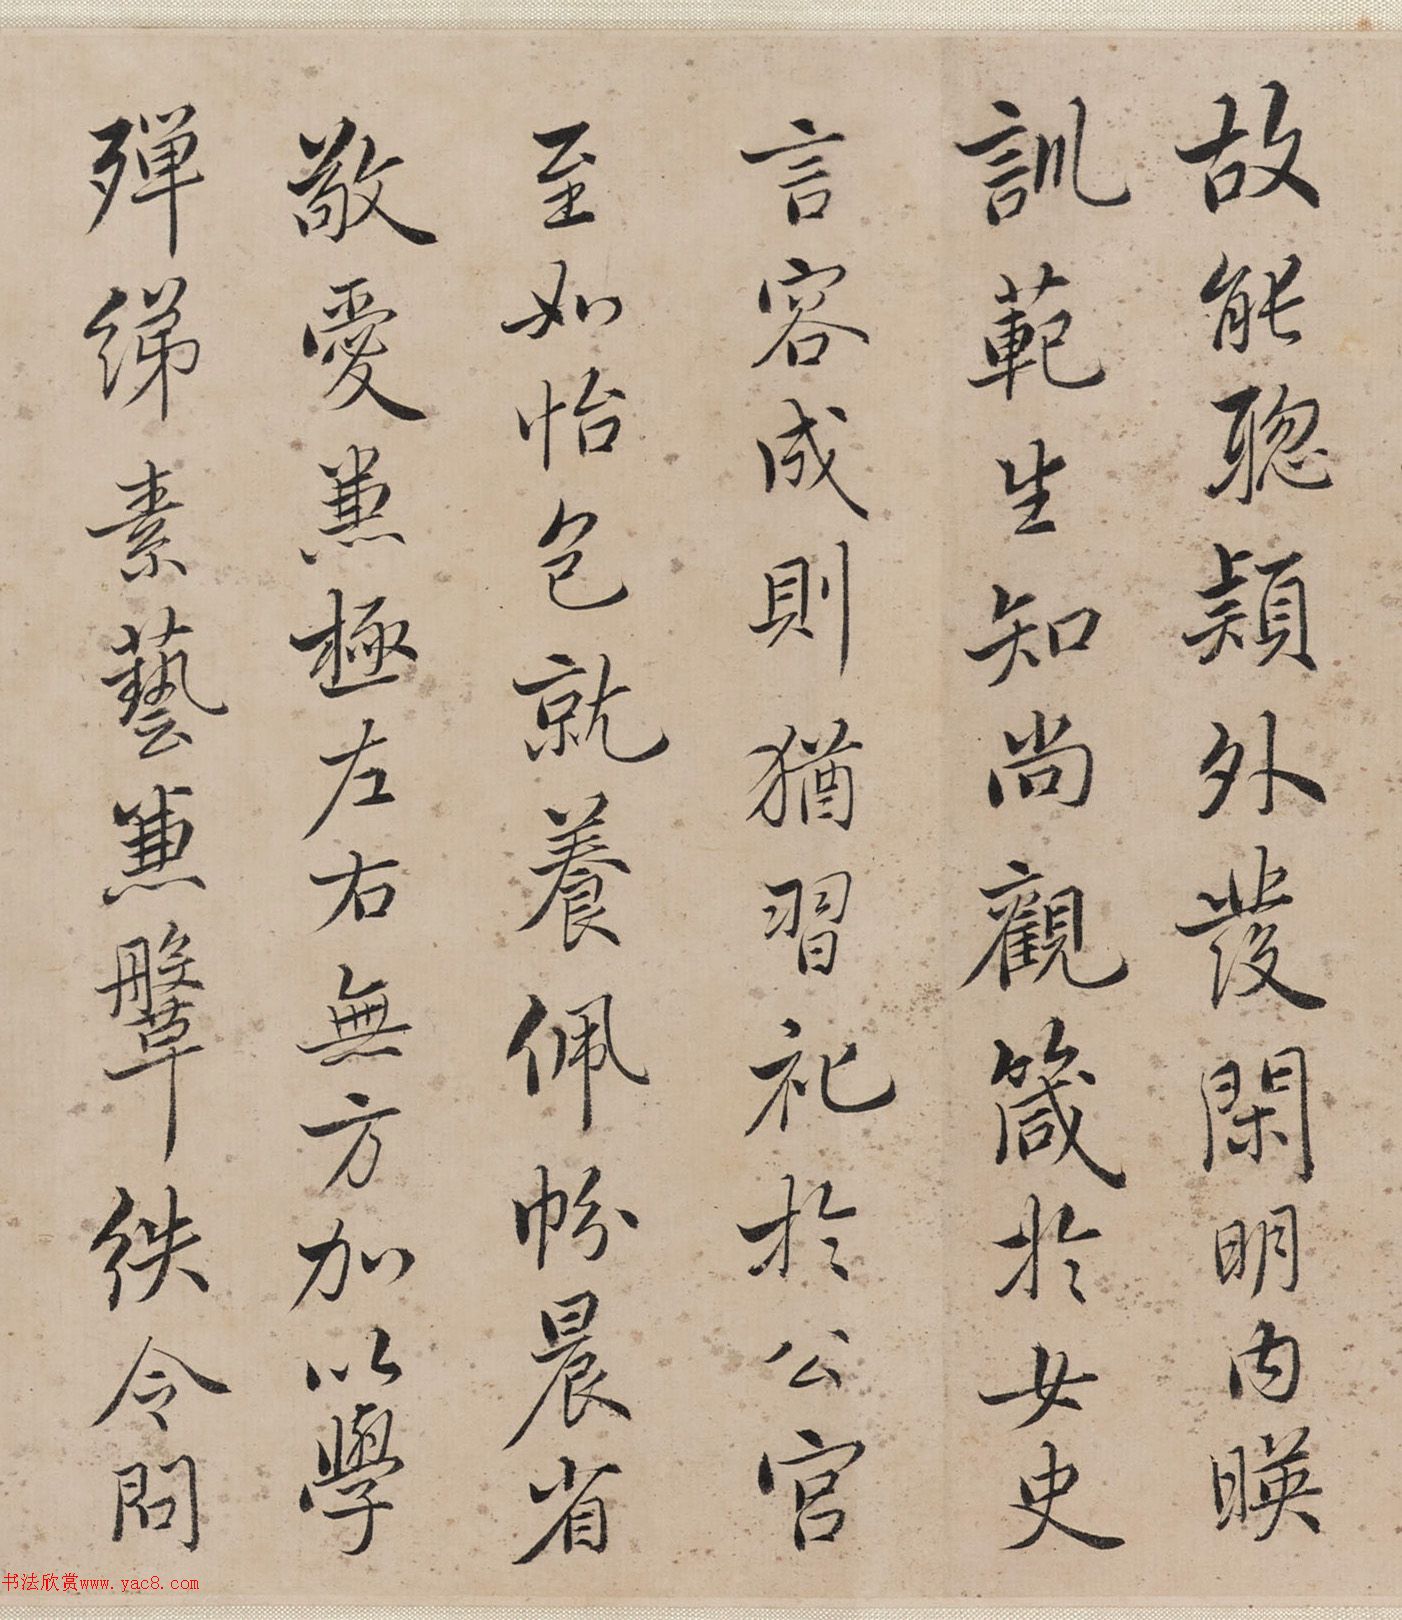 故能聰頴外發閑明内暎
訓範生知尚觀箴於女史
言容成則猶習祀於公宫
至如怡色就養佩帉晨省
敬愛兼極左右無方加以學
殫綈素藝兼鞶紩令問
书法欣赏www.yac8.com